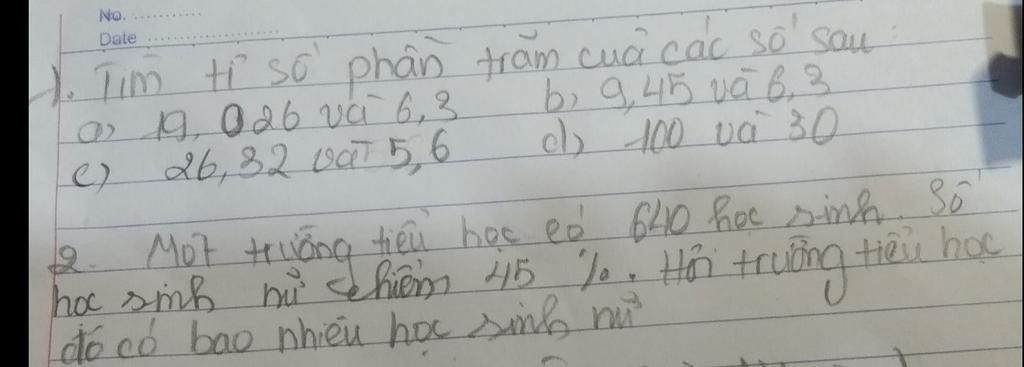 No. ............
Date ........................
1. Tìm tỉ số phần trăm của các số sau:
a) 19,026 và 6,3 b) 9,45 và 6,3
c) 26,32 và 5,6 d) 100 và 30
2. Một trường tiểu học có 640 học sinh. Số
học sinh nữ chiếm 45 %. Hỏi trường tiểu học
đó có bao nhiêu học sinh nữ